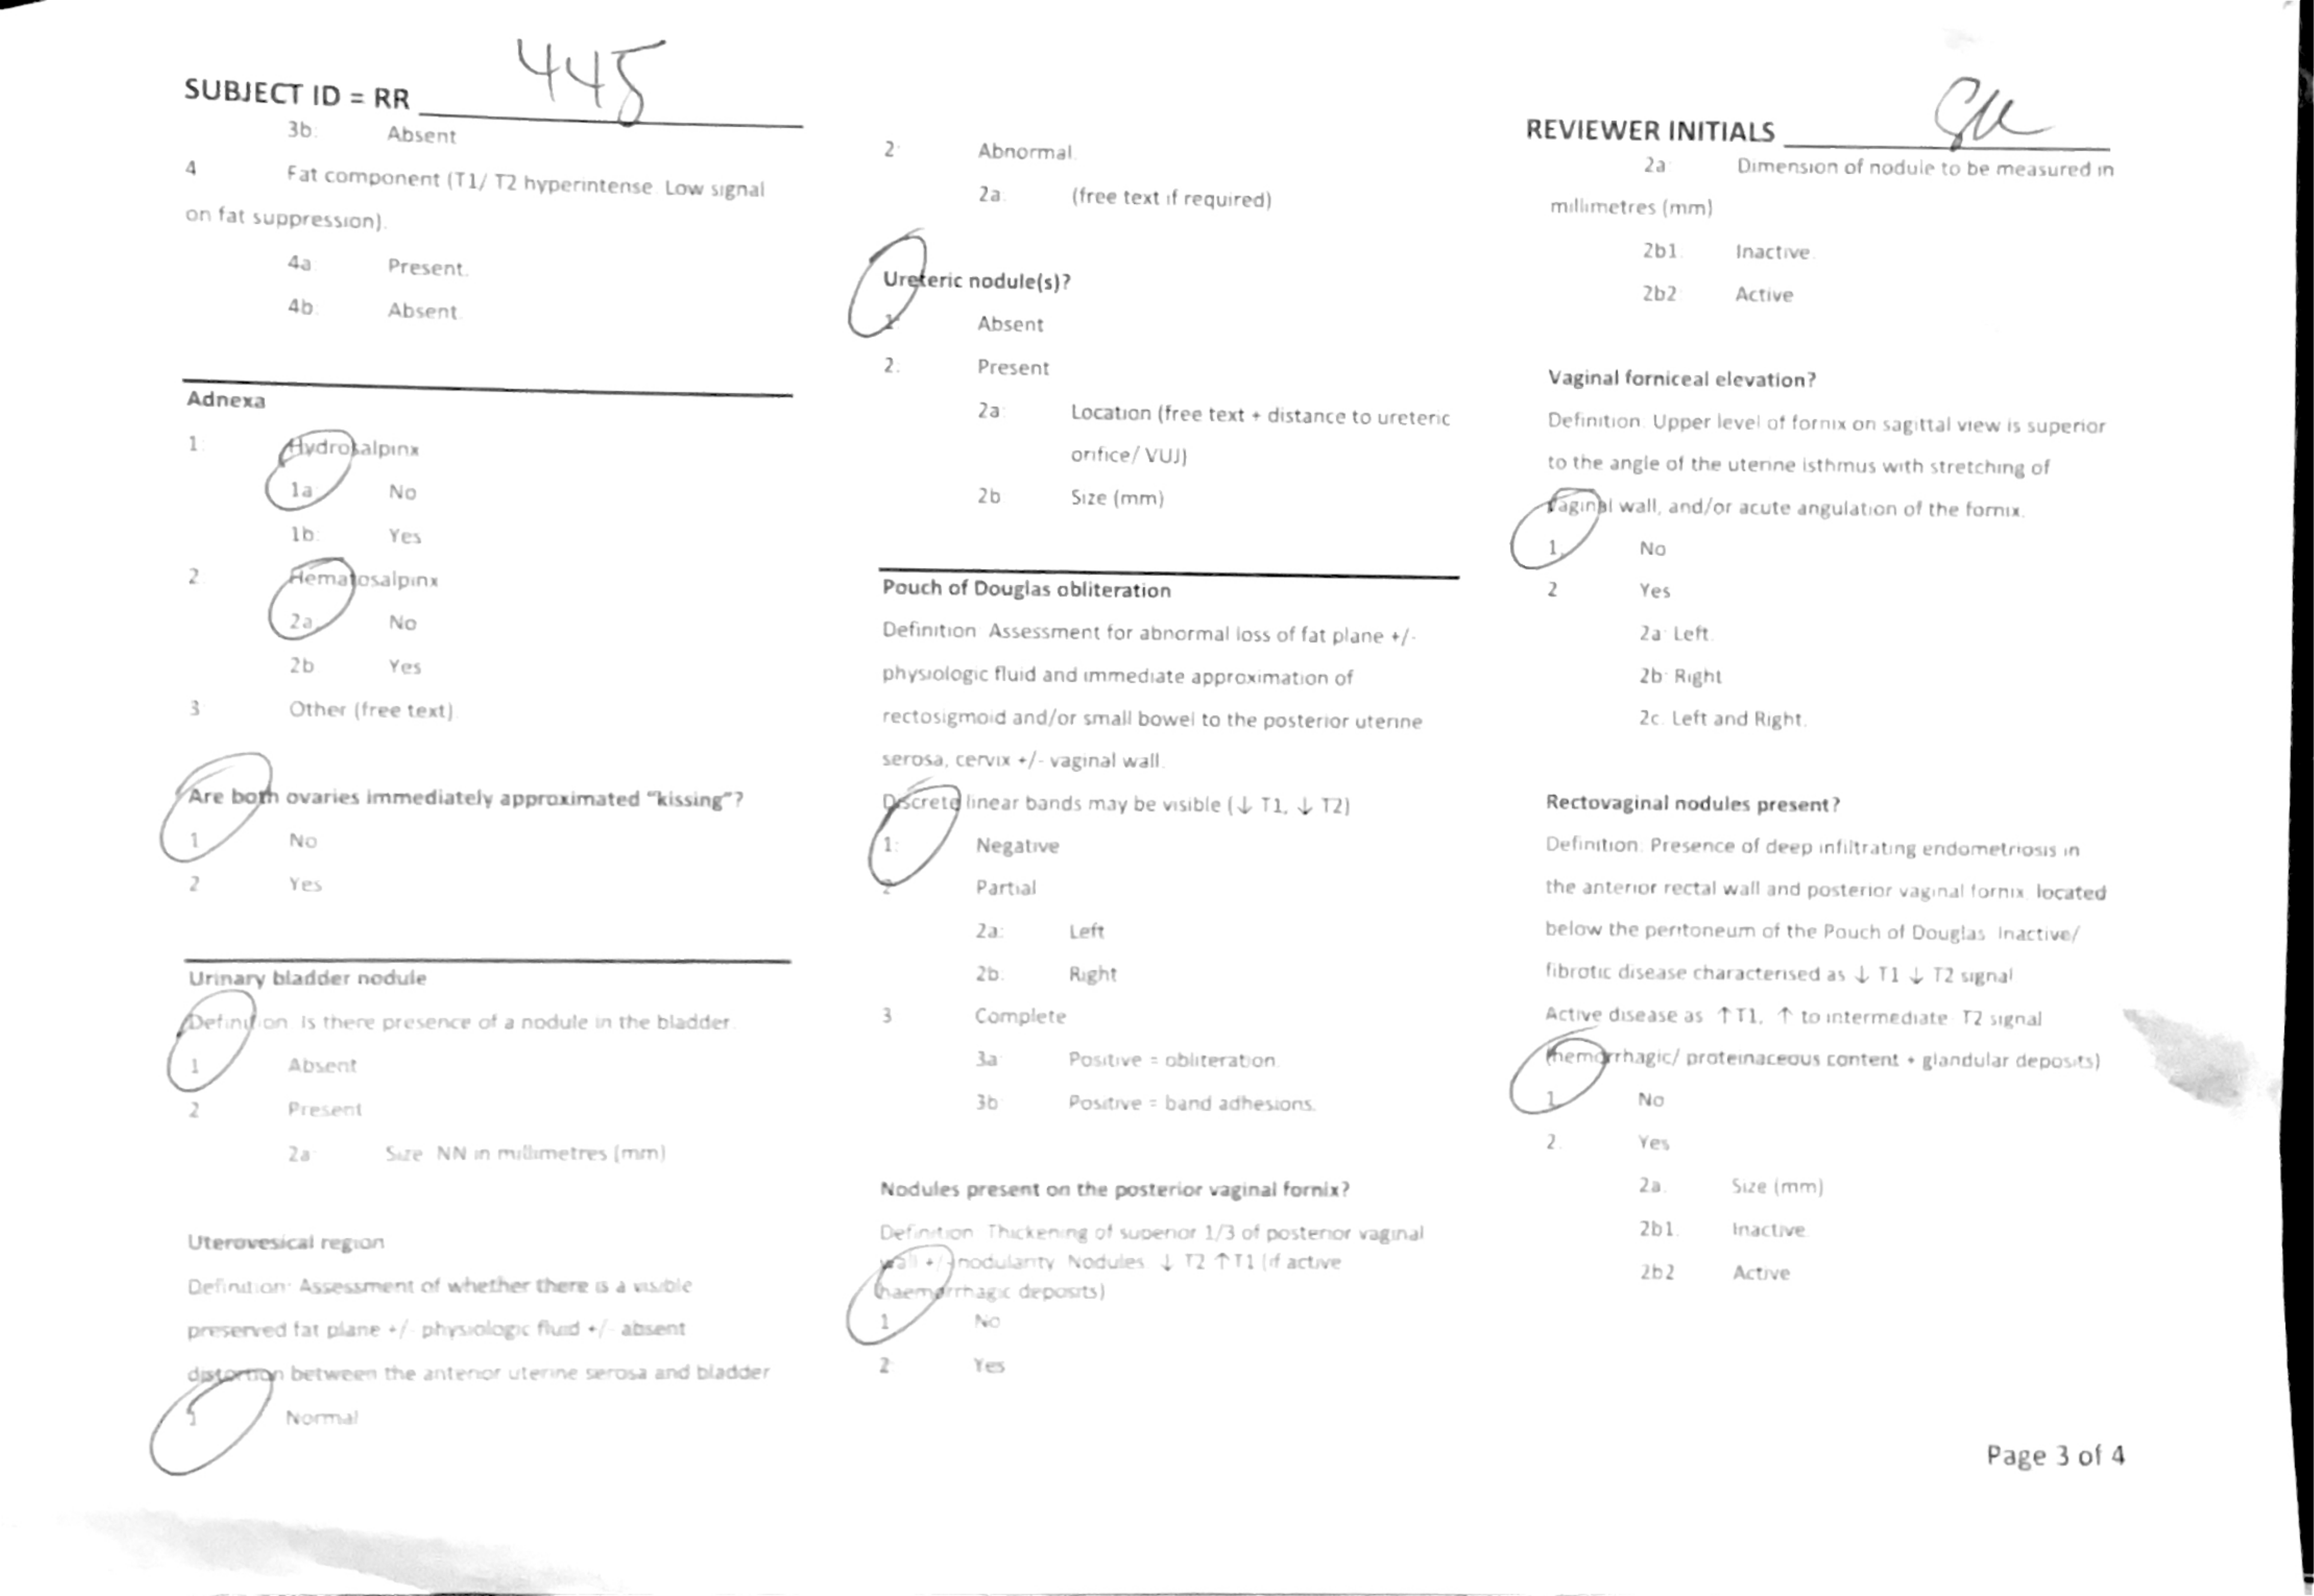 SUBJECT ID = RR 445
3b: Absent
4 Fat component (T1/ T2 hyperintense Low signal
on fat suppression).
4a Present.
4b. Absent
Adnexa
1: Hydrosalpinx
1a No
1b. Yes
2 Hematosalpinx
2a No
2b Yes
3 Other (free text).
Are both ovaries immediately approximated "kissing"?
1 No
2 Yes
Urinary bladder nodule
Definition Is there presence of a nodule in the bladder.
1 Absent
2 Present
2a Size NN in millimetres (mm)
Uterovesical region
Definition: Assessment of whether there is a visible
preserved fat plane +/- physiologic fluid +/- absent
distortion between the anterior uterine serosa and bladder
1 Normal
2: Abnormal.
2a. (free text if required)
Ureteric nodule(s)?
1 Absent
2. Present
2a: Location (free text + distance to ureteric
orifice/ VUJ)
2b Size (mm)
Pouch of Douglas obliteration
Definition Assessment for abnormal loss of fat plane +/-
physiologic fluid and immediate approximation of
rectosigmoid and/or small bowel to the posterior uterine
serosa, cervix +/- vaginal wall.
Discrete linear bands may be visible (↓ T1, ↓ T2)
1: Negative
2 Partial
2a: Left
2b. Right
3 Complete
3a Positive = obliteration.
3b Positive = band adhesions.
Nodules present on the posterior vaginal fornix?
Definition Thickening of superior 1/3 of posterior vaginal
wall +/- nodularity Nodules ↓ T2 ↑T1 (if active
haemorrhagic deposits)
1 No
2 Yes
REVIEWER INITIALS
2a Dimension of nodule to be measured in
millimetres (mm)
2b1. Inactive.
2b2: Active
Vaginal forniceal elevation?
Definition: Upper level of fornix on sagittal view is superior
to the angle of the uterine isthmus with stretching of
vaginal wall, and/or acute angulation of the fornix.
1. No
2 Yes
2a: Left.
2b: Right
2c. Left and Right.
Rectovaginal nodules present?
Definition: Presence of deep infiltrating endometriosis in
the anterior rectal wall and posterior vaginal fornix located
below the peritoneum of the Pouch of Douglas Inactive/
fibrotic disease characterised as ↓ T1 ↓ T2 signal
Active disease as ↑T1, ↑ to intermediate T2 signal
(hemorrhagic/ proteinaceous content + glandular deposits)
1. No
2. Yes
2a. Size (mm)
2b1. Inactive.
2b2 Active
Page 3 of 4